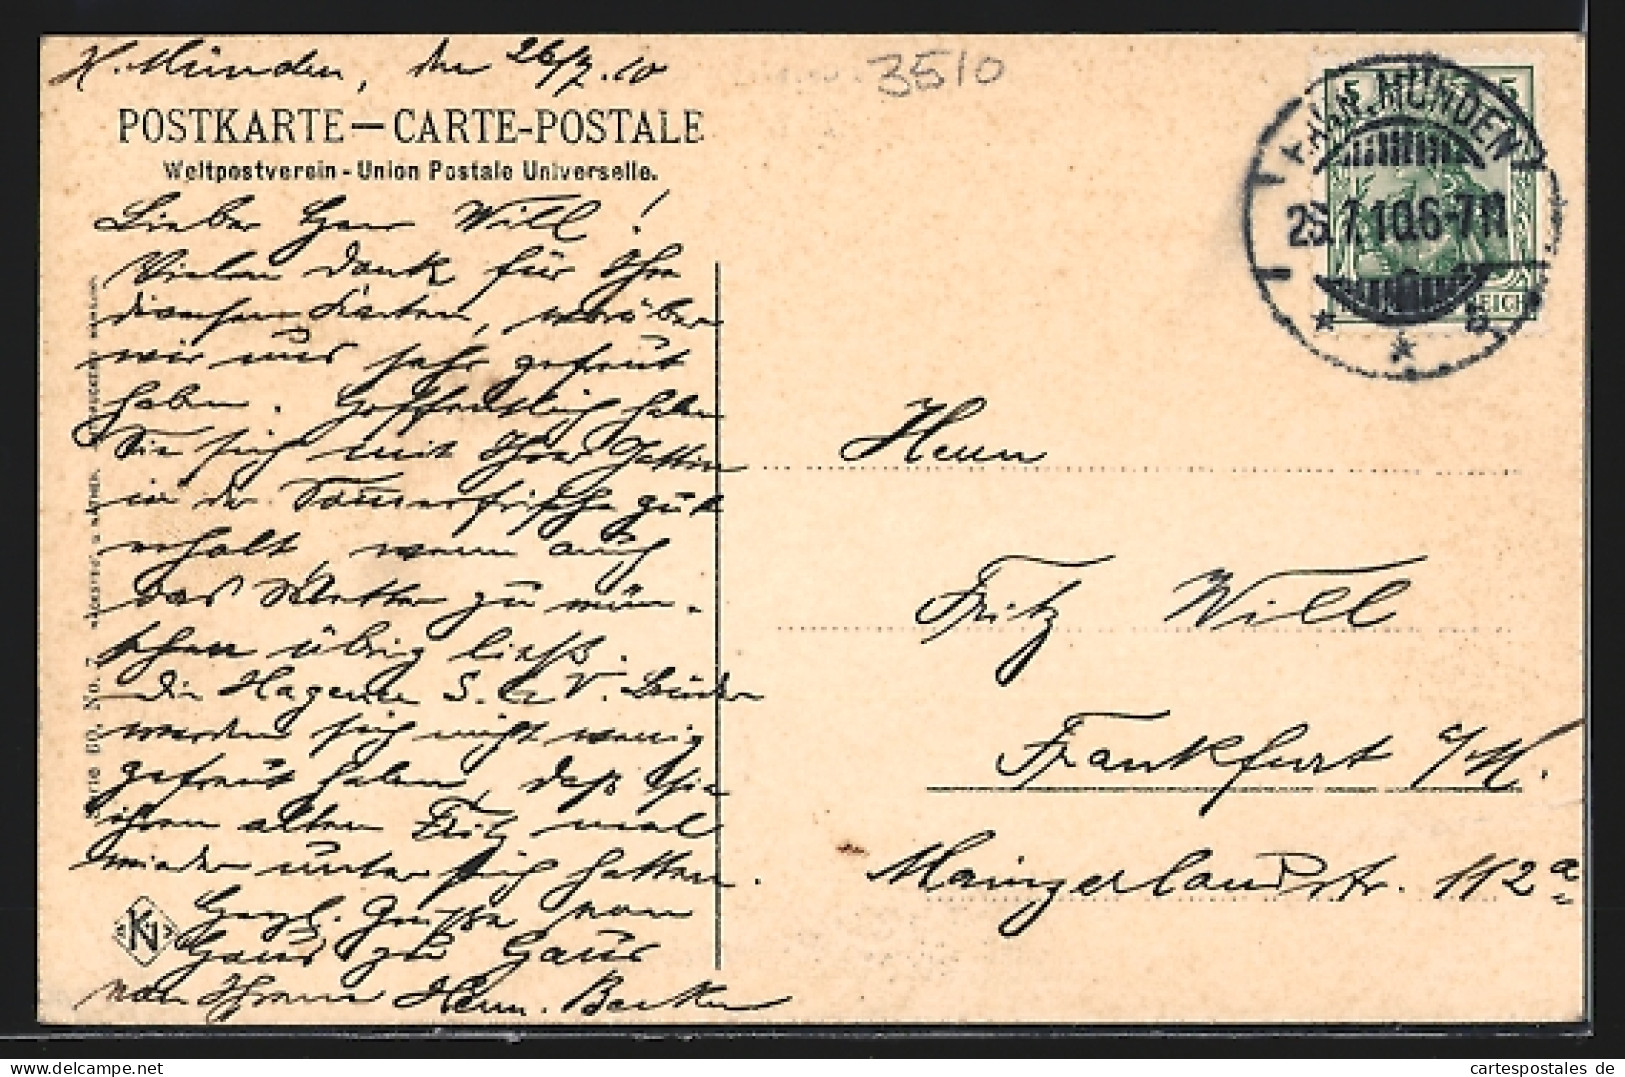 H. Münden, den 26/7.10
3510
POSTKARTE — CARTE-POSTALE
Weltpostverein - Union Postale Universelle.
HANN. MÜNDEN
26.7.10.6-7N
5 5
REICH
Lieber Herr Will!
Vielen Dank für Ihre
diversen Karten, worüber
wir uns sehr gefreut
haben. Hoffentlich haben
Sie sich mit Ihrer Gattin
in der Sommerfrische gut
erholt, wenn auch
das Wetter zu wün-
schen übrig ließ.
Die Hagener S. C. V. Brüder
werden sich nicht wenig
gefreut haben, daß sie
ihren alten Fritz mal
wieder unter sich hatten.
Herzl. Grüsse von
Haus zu Haus
von Ihrem Herm. Becker
Herrn
Fritz Will
Frankfurt a/M.
Mainzerlandstr. 112a
Serie No. 7
KN
cartespostales de